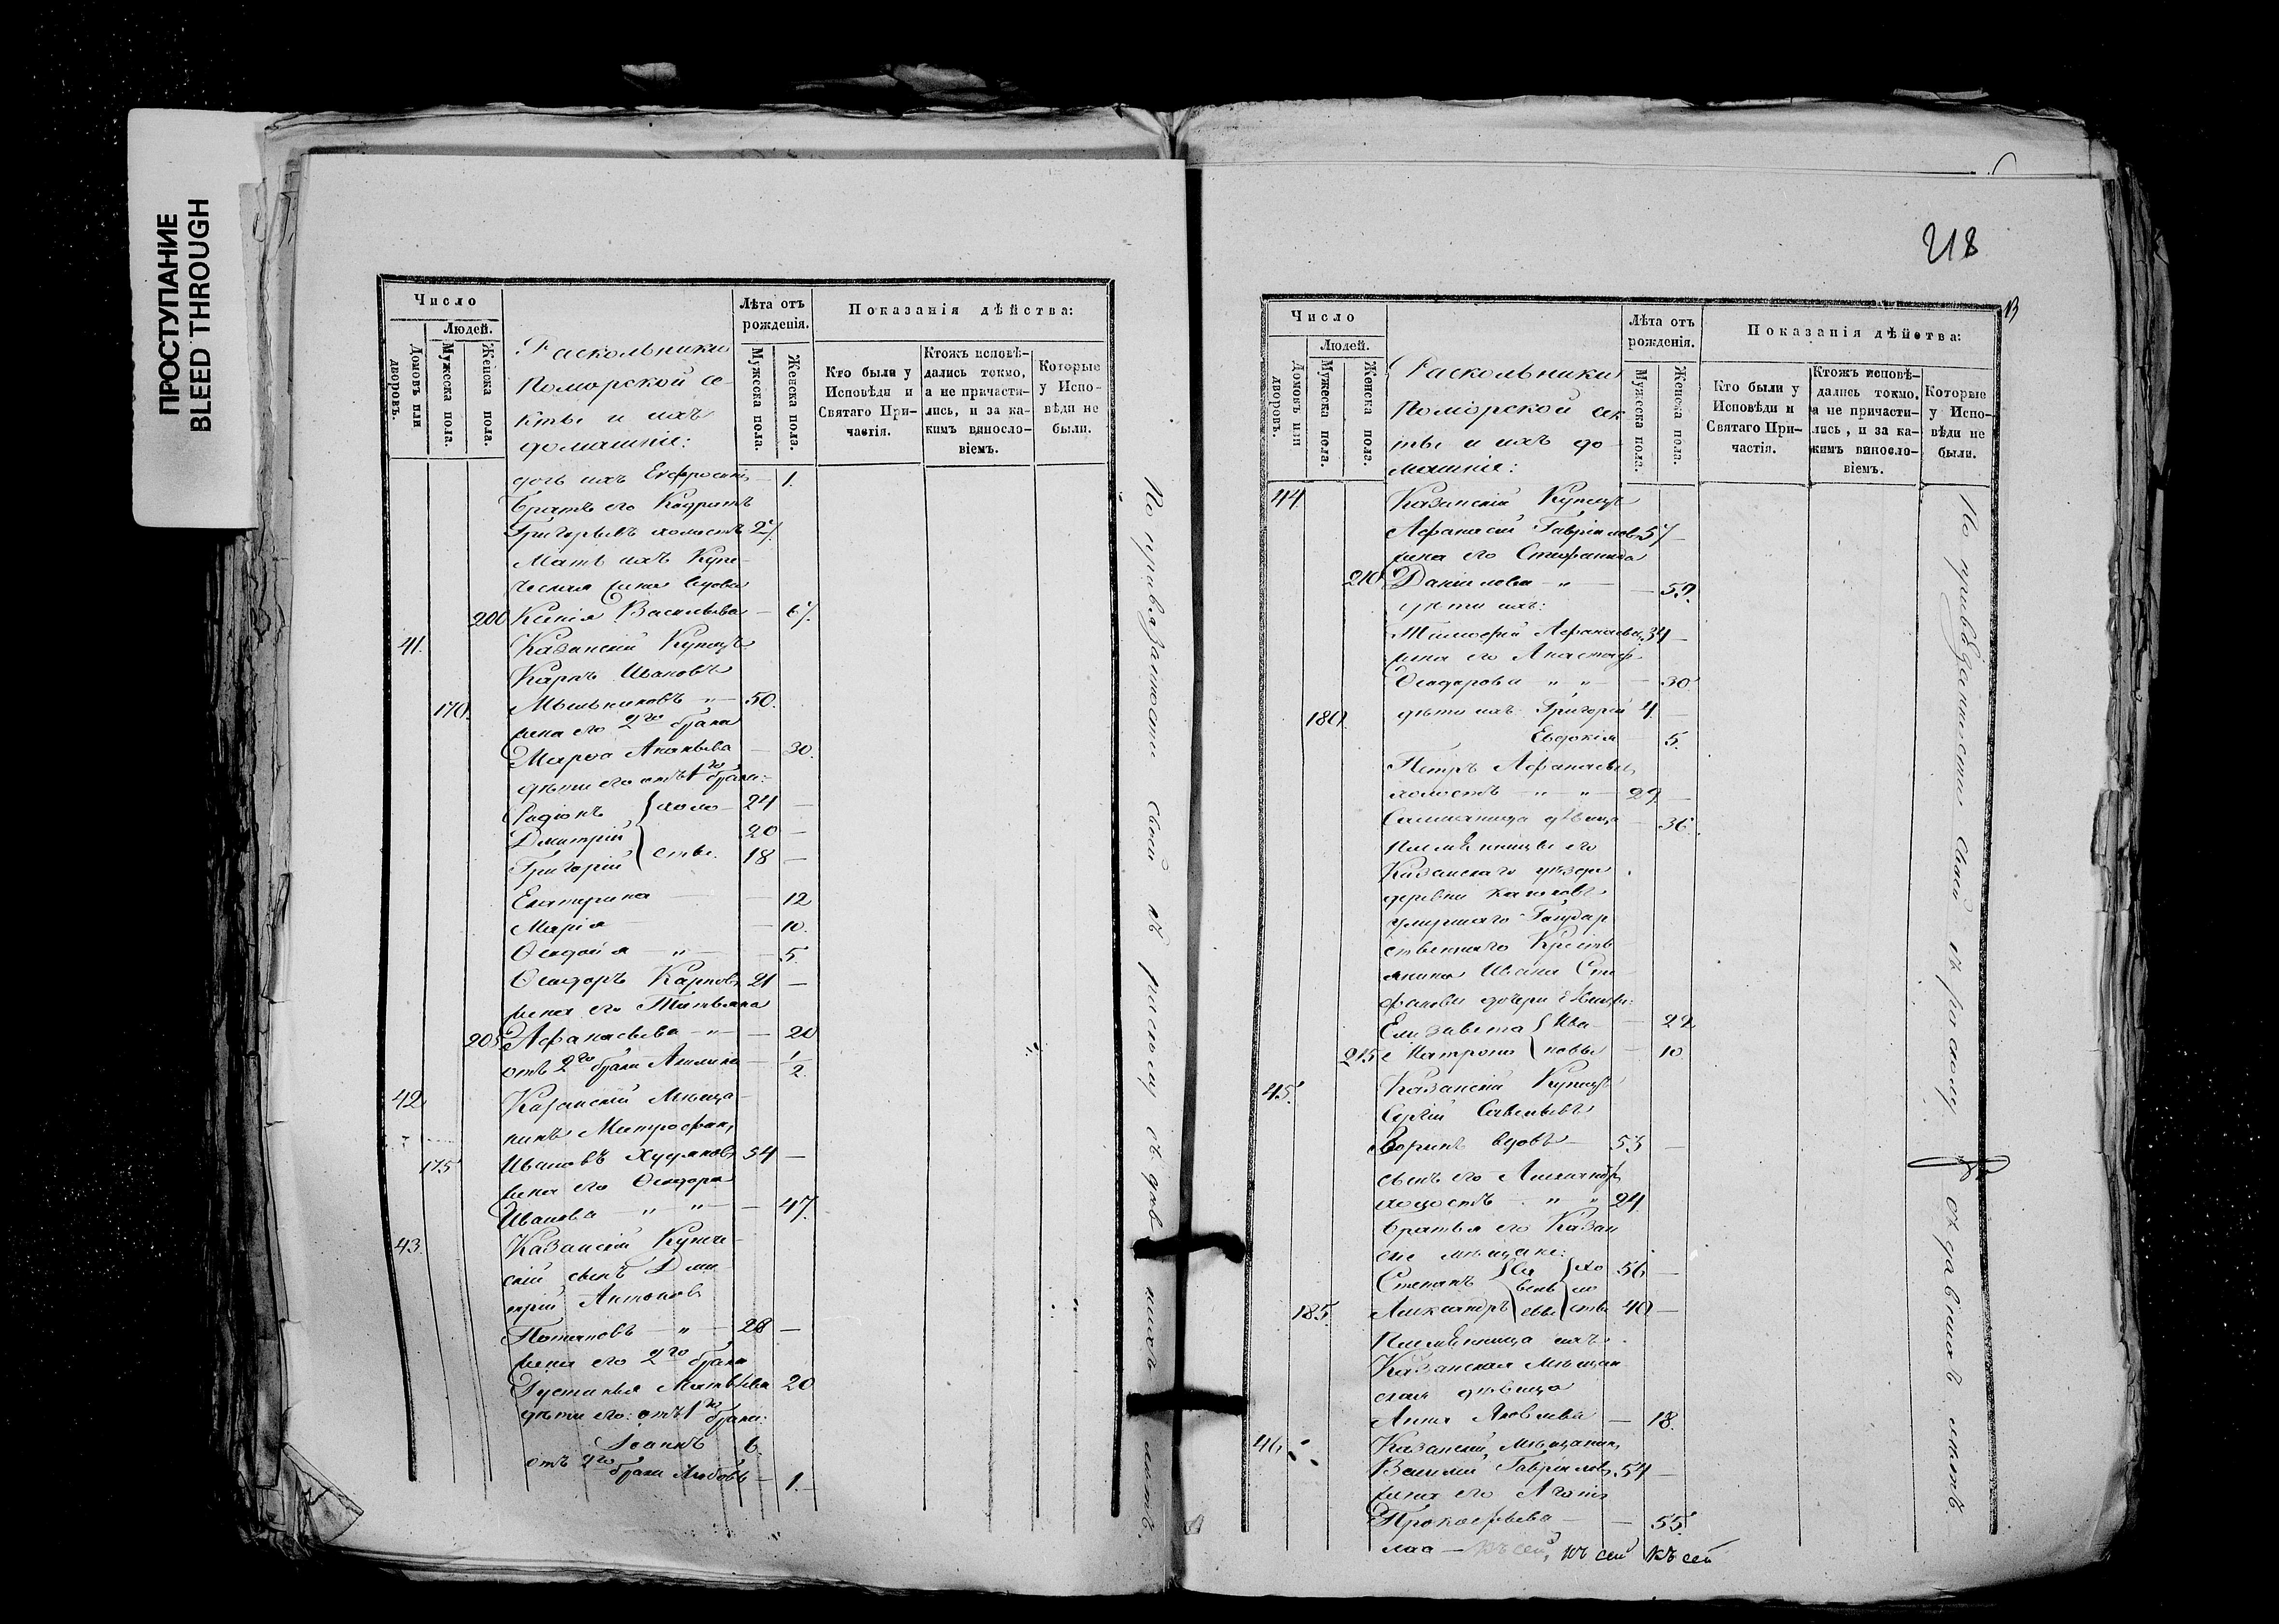 ПРОСТУПАНИЕ
BLEED THROUGH
Число
Людей.
Домовъ или дворовъ.
Мужеска пола.
Женска пола.
Раскольники
Поморской се-
кты и ихъ
домашніе:
Лѣта отъ
рожденія.
Мужеска пола.
Женска пола.
Показанія дѣйства:
Кто были у
Исповѣди и
Святаго При-
частія.
Ктожъ исповѣ-
дались токмо,
а не причасти-
лись, и за ка-
кимъ виносло-
віемъ.
Которые
у Испо-
вѣди не
были.
дочь ихъ 1.
Братъ его
Григорьевъ холостъ 27.
Мать ихъ Купе-
ческая вдова
200 Васильева — 67.
41. Казанскій Купецъ
Карпъ Ивановъ
170. Мыльниковъ — 50.
жена его 2го брака
Марѳа Ананьева — 30.
дѣти его отъ 1го брака:
Родіонъ } холо- 24 —
Дмитрій 20 —
Григорій } сты. 18 —
Екатерина — 12
Марія — 10.
5.
Ѳеодоръ Карповъ 21 —
жена его Татьяна
205. Аѳанасьева — " — 20
отъ 2го брака 1/2.
42. Казанскій Мѣща-
нинъ Митрофанъ
175 Ивановъ Худяковъ 54 —
жена его Ѳеодора
Иванова — " — " — 47.
43. Казанскій Купече-
скій сынъ Дми-
трій Антоновъ
Потаповъ — " — 28 —
жена его 2го брака
Устинья Матвѣева 20
дѣти его: отъ 1го брака:
Іоаннъ 6.
отъ 2го брака Любовь — 1. —
По привязанности своей къ расколу съ давнихъ лѣтъ.
218
Число
Людей.
Домовъ или дворовъ.
Мужеска пола.
Женска пола.
Раскольники
Поморской сек
ты и ихъ до
машніе:
Лѣта отъ
рожденія.
Мужеска пола.
Женска пола.
Показанія дѣйства:
Кто были у
Исповѣди и
Святаго При-
частія.
Ктожъ исповѣ-
дались токмо,
а не причасти-
лись, и за ка-
кимъ виносло-
віемъ.
Которые
у Испо-
вѣди не
были.
44. Казанскій Купецъ
Афанасій Гавриловъ 57 —
жена его Стефанида
210 Данилова — " — 59.
дѣти ихъ:
Тимофей Афанасьевъ 34 —
жена его
Ѳеодорова — " " — 30.
180. дѣти ихъ: Григорій 4. —
Евдокія 5.
Петръ Афанасьевъ
холостъ — " — " — 29. —
дѣвица — 36.
племянницы его
Казанскаго уѣзда
деревни
умершаго Государ
ственнаго Кресть
янина Ивана Сте
фанова дочери дѣвицы:
Елизавета } Ива- — 22
215. Матрона } новы — 10.
45. Казанскій Купецъ
Сергій Савельевъ
вдовъ — 53 —
сынъ его Александръ
холостъ — " " 24.
братья его Казан
скіе мѣщане:
Степанъ } Са } хо 56 —
185. Александръ вель ло евы сты 40 —
Племянница ихъ
Казанская Мѣщан
ская дѣвица
Анна Яковлева — 18.
46. Казанскій Мѣщанинъ
Василій Гавриловъ 54 —
жена его
Прокофьева — — 55.
къ сей къ сей къ сей
По привязанности своей къ расколу съ давнихъ лѣтъ.